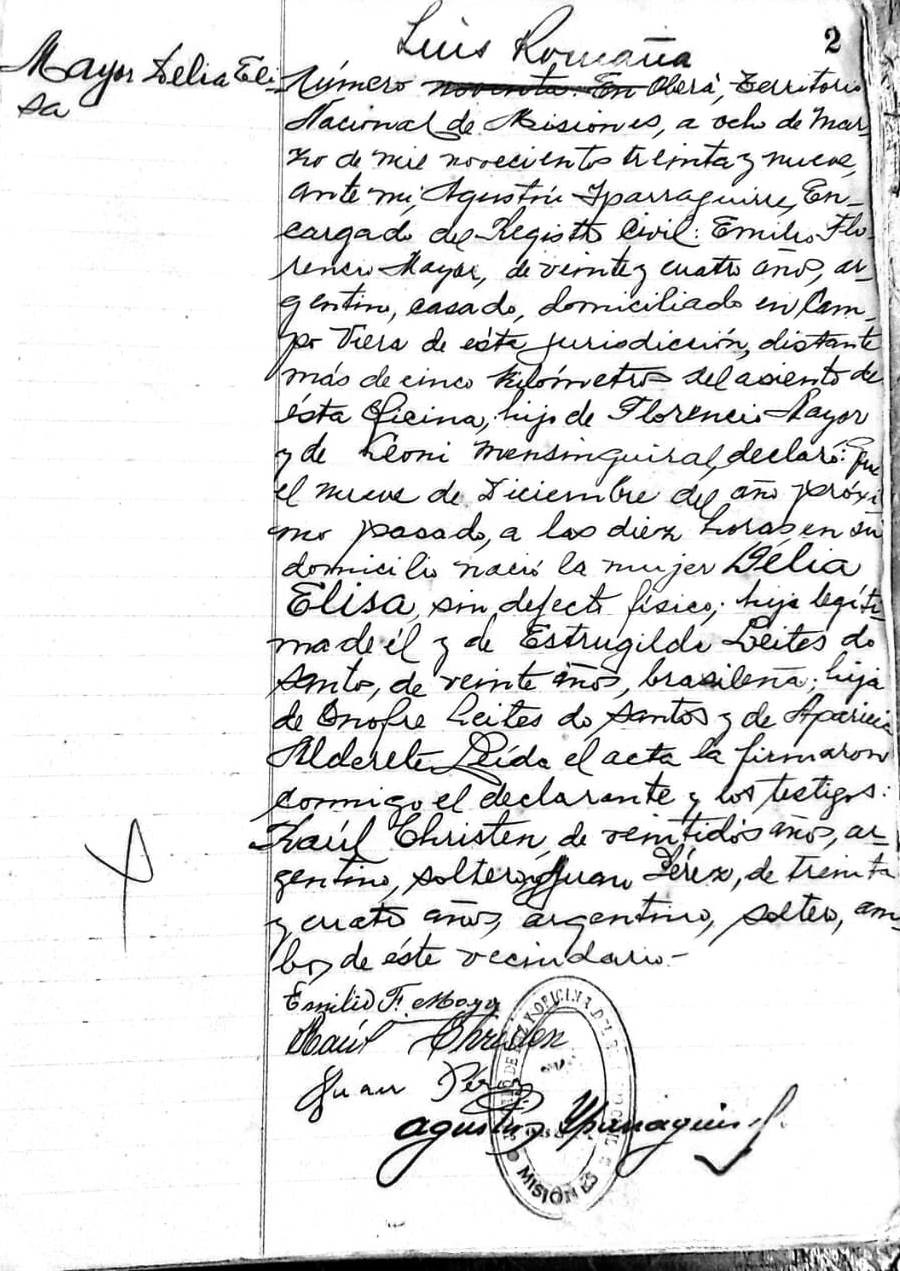 Luis Romaña
2
Mayor Delia Eli-
sa
Número noventa. En Oberá, Territorio
Nacional de Misiones, a ocho de Mar-
zo de mil novecientos treinta y nueve,
ante mí, Agustín Yparraguirre, En-
cargado del Registro Civil: Emilio Flo-
rencio Mayor, de veinte y cuatro años, ar-
gentino, casado, domiciliado en Cam-
po Viera de ésta jurisdicción, distante
más de cinco kilómetros del asiento de
ésta Oficina, hijo de Florencio Mayor
y de Leoni Mensinguiral, declaró: que
el nueve de Diciembre del año próxi
mo pasado, a las diez horas, en su
domicilio nació la mujer Délia
Elisa, sin defecto físico; hija legíti-
ma de él y de Estrugilda Leites do
Santo, de veinte años, brasileña; hija
de Onofre Leites do Santos y de Aparicia
Alderete. Leída el acta la firmaron
conmigo el declarante y los testigos:
Raúl Christen, de veintidós años, ar-
gentino, soltero y Juan Pérez, de treinta
y cuatro años, argentino, soltero, am-
bos de éste vecindario.-
Emilio F. Mayor
Raúl Christen
Juan Pérez
Agustín Yparraguirre
MISIONES